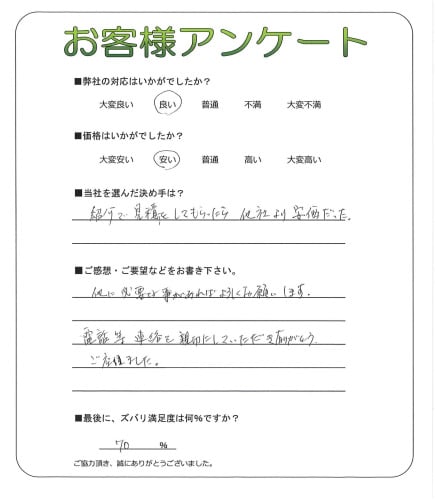 お客様アンケート
■弊社の対応はいかがでしたか？
大変良い 良い 普通 不満 大変不満
■価格はいかがでしたか？
大変安い 安い 普通 高い 大変高い
■当社を選んだ決め手は？
紹介で見積をしてもらったら他社より安価だった。
■ご感想・ご要望などをお書き下さい。
他に必要な事があればよろしくお願いします。
電話等連絡を親切にしていただき有がとう
ご座いました。
■最後に、ズバリ満足度は何%ですか？
70 %
ご協力頂き、誠にありがとうございました。